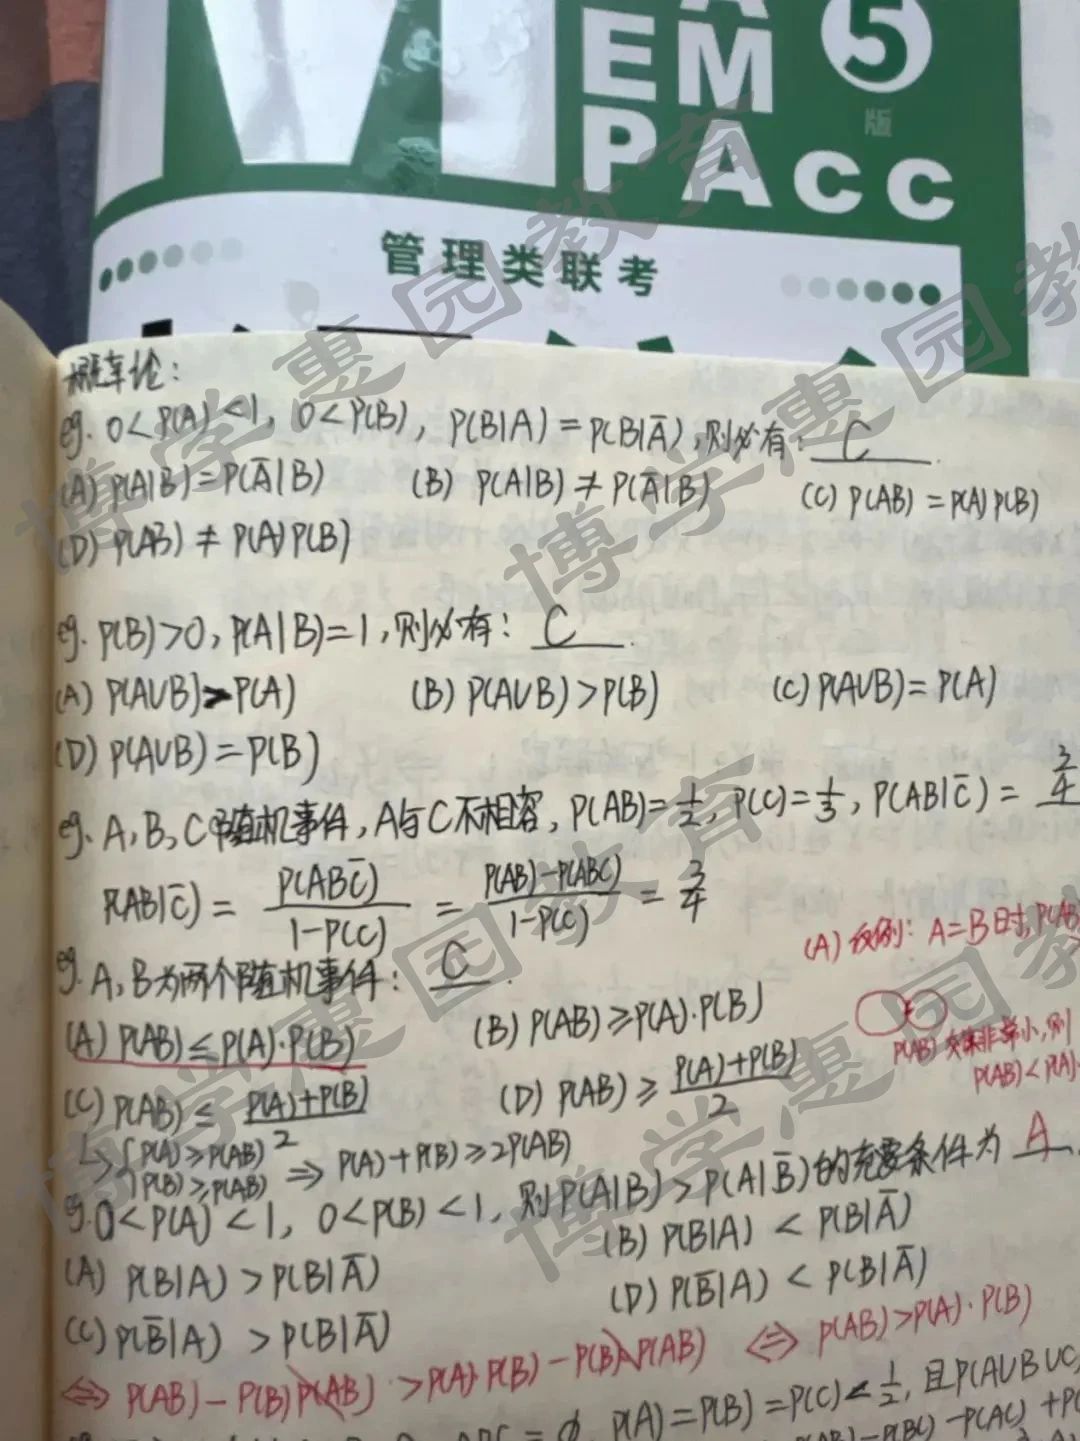 EM
5
版
PAcc
管理类联考
概率论:
eg. 0<P(A)<1, 0<P(B), P(B|A)=P(B|A̅),则必有: C
(A) P(A|B)=P(A̅|B) (B) P(A|B)≠P(A̅|B) (C) P(AB)=P(A)P(B)
(D) P(AB)≠P(A)P(B)
eg. P(B)>0, P(A|B)=1,则必有: C
(A) P(A∪B)>P(A) (B) P(A∪B)>P(B) (C) P(A∪B)=P(A)
(D) P(A∪B)=P(B)
eg. A, B, C随机事件, A与C不相容, P(AB)=1/2, P(C)=1/3, P(AB|C̅)= 3/4
P(AB|C̅)= P(ABC̅)/1-P(C) = P(AB)-P(ABC)/1-P(C) = 3/4
(A) 反例: A=B时, P(AB)
eg. A, B为两个随机事件: C
(A) P(AB)≤P(A)·P(B) (B) P(AB)≥P(A)·P(B)
P(AB) 非常小,则
P(AB)<P(A)·
(C) P(AB)≤ P(A)+P(B)/2 (D) P(AB)≥ P(A)+P(B)/2
↳ {P(A)≥P(AB) P(B)≥P(AB) ⇒ P(A)+P(B)≥2P(AB)
eg. 0<P(A)<1, 0<P(B)<1, 则P(A|B)>P(A|B̅)的充要条件为 A
(A) P(B|A)>P(B|A̅) (B) P(B|A)<P(B|A̅)
(C) P(B̅|A)>P(B|A̅) (D) P(B̅|A)<P(B|A̅)
⇔ P(AB)-P(B)P(AB)>P(A)P(B)-P(B)P(AB) ⇔ P(AB)>P(A)·P(B)
=∅, P(A)=P(B)=P(C)<1/2, 且P(A∪B∪C
-P(BC)-P(AC)+P(
博学惠园教育
博学惠园教育
博学惠园教育
博学惠园教育